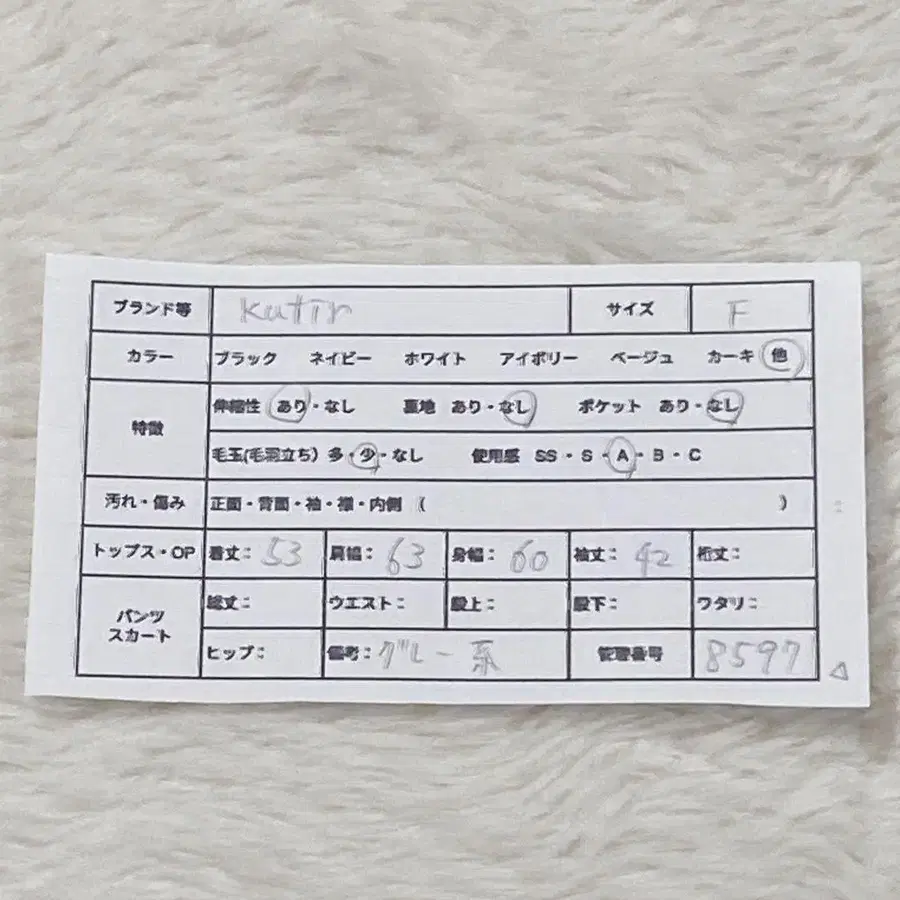 ブランド等 Kutir サイズ F
カラー ブラック ネイビー ホワイト アイボリー ベージュ カーキ 他
特徴 伸縮性 あり・なし 裏地 あり・なし ポケット あり・なし
毛玉(毛羽立ち) 多・少・なし 使用感 SS・S・A・B・C
汚れ・傷み 正面・背面・袖・襟・内側 ( )
トップス・OP 着丈: 53 肩幅: 63 身幅: 60 袖丈: 42 裄丈:
パンツ スカート 総丈: ウエスト: 股上: 股下: ワタリ:
ヒップ: 備考: グレー系 管理番号 8597